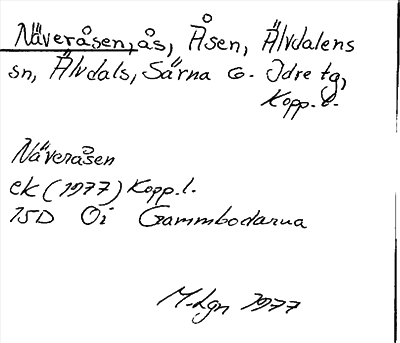 Näveråsen, ås, Åsen, Älvdalens
sn, Älvdals, Särna o. Idre tg,
Kopp. l.
Näveråsen
ek (1977) Kopp.l.
15D 0i Gammbodarna
M-Lgn 1977